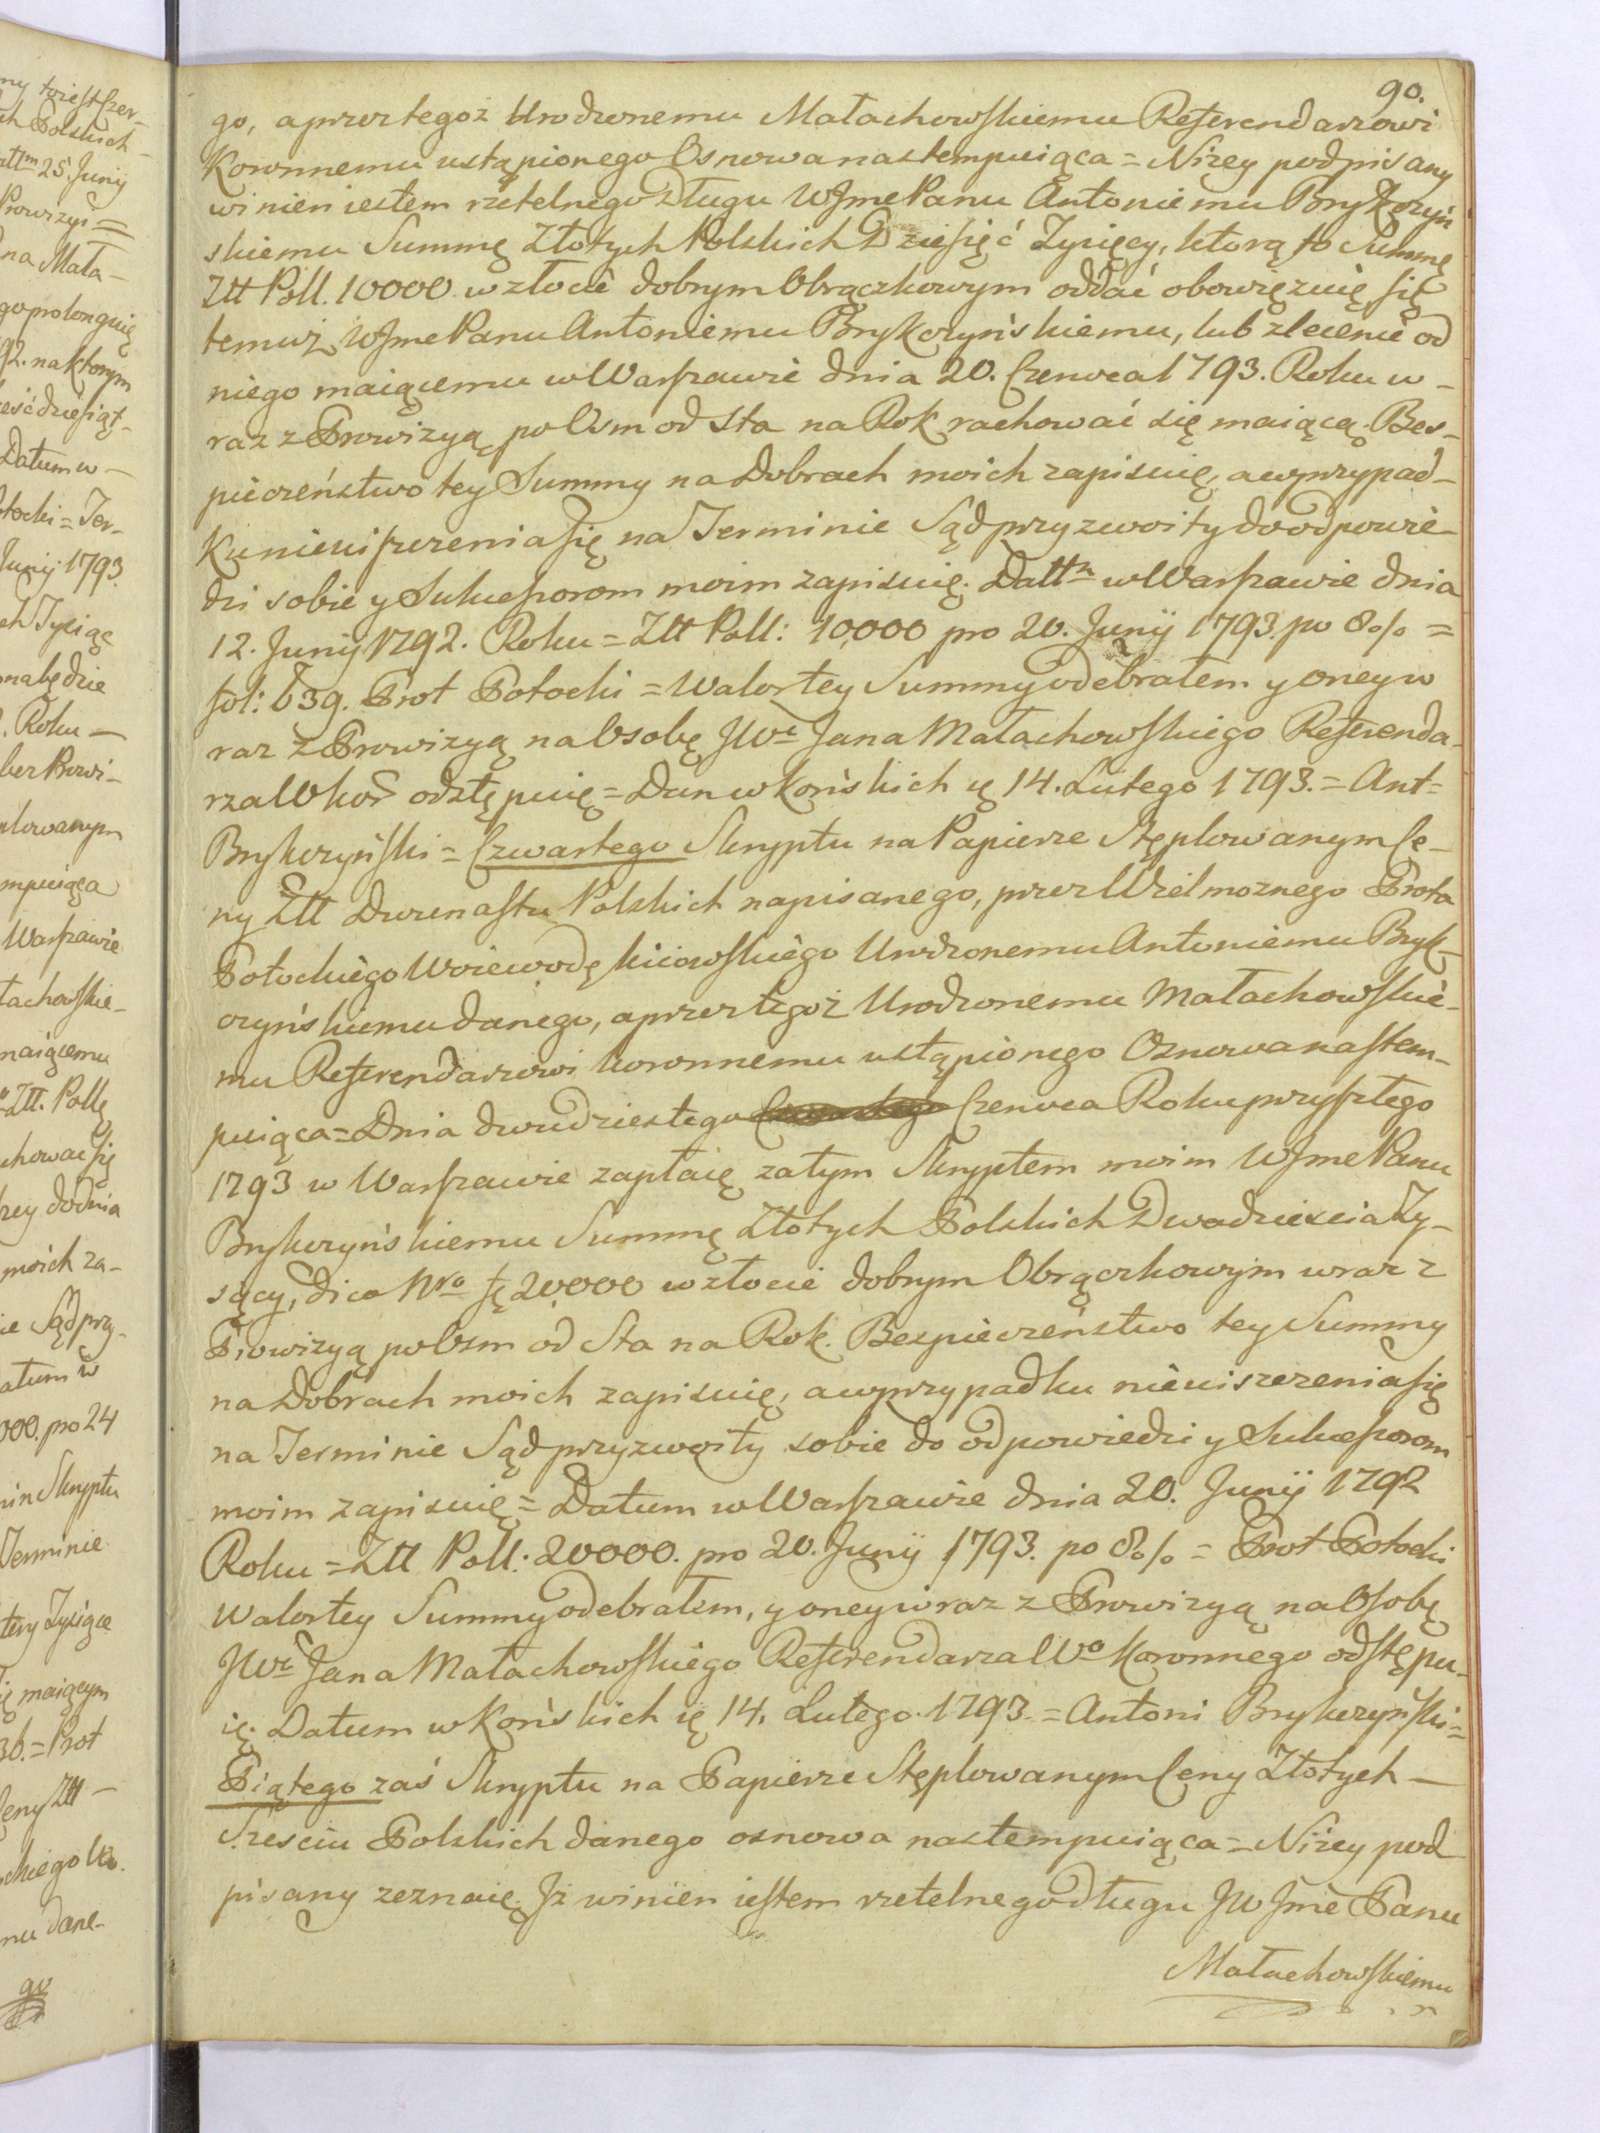 90.
go, a przez tegoż Urodzonemu Małachowskiemu Referendarzowi
Koronnemu ustąpionego Osnowa nastempuiąca = Niżey podpisany
winien iestem rzetelnego Długu WJme Panu Antoniemu Brykczyń
skiemu Summę Złotych Polskich Dziesięć Tysięcy, którą to Summę
Ztt Poll. 10000 w złocie dobrym Obrączkowym oddać obowięzuię się
temuż WJme Panu Antoniemu Brykczyńskiemu, lub zlecenie od
niego maiącemu w Warszawie dnia 20. Czerwca 1793. Roku w-
raz z Prowizyą po Osm od Sta na Rok rachować się maiącą. Bes-
pieczeństwo tey Summy na Dobrach moich zapisuię, a wprzypad-
ku nieuiszczenia się na Terminie Sąd przyzwoity do odpowie-
dzi sobie y Sukcessorom moim zapisuię. Datt m w Warszawie dnia
12. Junij 1792. Roku = Ztt Poll: 10,000 pro 20. Junij 1793. po 8% =
fol: 639. Prot Potocki = Walor tey Summy odebrałem y oney w
raz z Prowizyą na Osobę JWo Jana Małachowskiego Referenda-
rza W Kor odstępuię = Dan w Końskich ię 14. Lutego 1793. = Ant=
Brykczyński = Czwartego Skryptu na Papierze Stęplowanym Ce-
ny Ztt Dwunastu Polskich napisanego, przez Wielmożnego Prota
Potockiego Woiewodę kiiowskiego Urodzonemu Antoniemu Bryk-
czyńskiemu danego, a przez tegoż Urodzonemu Małachowskie-
mu Referendarzowi koronnemu ustąpionego Osnowa nastem-
puiąca = Dnia dwudziestego Czerwca Roku przyszłego
1793 w Warszawie zapłaię za tym Skryptem moim WJme Panu
Brykczyńskiemu Summę Złotych Polskich Dwadziescia Ty-
sięcy, dico Nro 20,000 w złocie dobrym Obrączkowym wraz z
Prowizyą po Osm od Sta na Rok. Bezpieczeństwo tey Summy
na Dobrach moich zapisuię, a wprzypadku nieuiszczenia się
na Terminie Sąd przyzwoity sobie do odpowiedzi y Sukcessorom
moim zapisuię = Datum w Warszawie dnia 20. Junij 1792
Roku = Ztt Poll: 20000. pro 20. Junij 1793. po 8% = Prot Potocki
Walor tey Summy odebrałem, y oney wraz z Prowizyą na Osobę
JWo Jana Małachowskiego Referendarza Wo Koronnego odstępu-
ię. Datum w Końskich ię 14. Lutego. 1793. = Antoni Brykczyński =
Piątego zaś Skryptu na Papierze Stęplowanym Ceny Złotych —
Szesciu Polskich danego osnowa nastempuiąca = Niżey pod
pisany zeznaię Jż winien iestem rzetelnego długu JW Jme Panu
Małachowskiemu